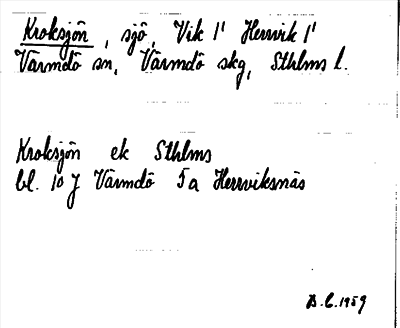 Kroksjön, sjö, Vik 1' Herrvik 1'
Värmdö sn, Värmdö skg, Sthlms l.
Kroksjön ek Sthlms
bl. 10 J Värmdö 5a Herrviksnäs
B.C. 1959